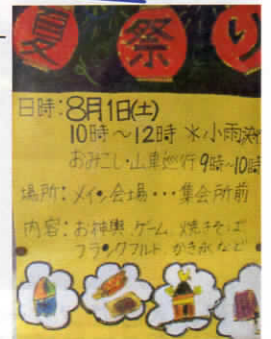 夏祭り
日時:8月1日(土)
10時~12時 ※小雨決行
おみこし・山車巡行 9時~10時
場所:メイン会場・・・集会所前
内容:お神輿、ゲーム、焼きそば
フランクフルト かき氷など